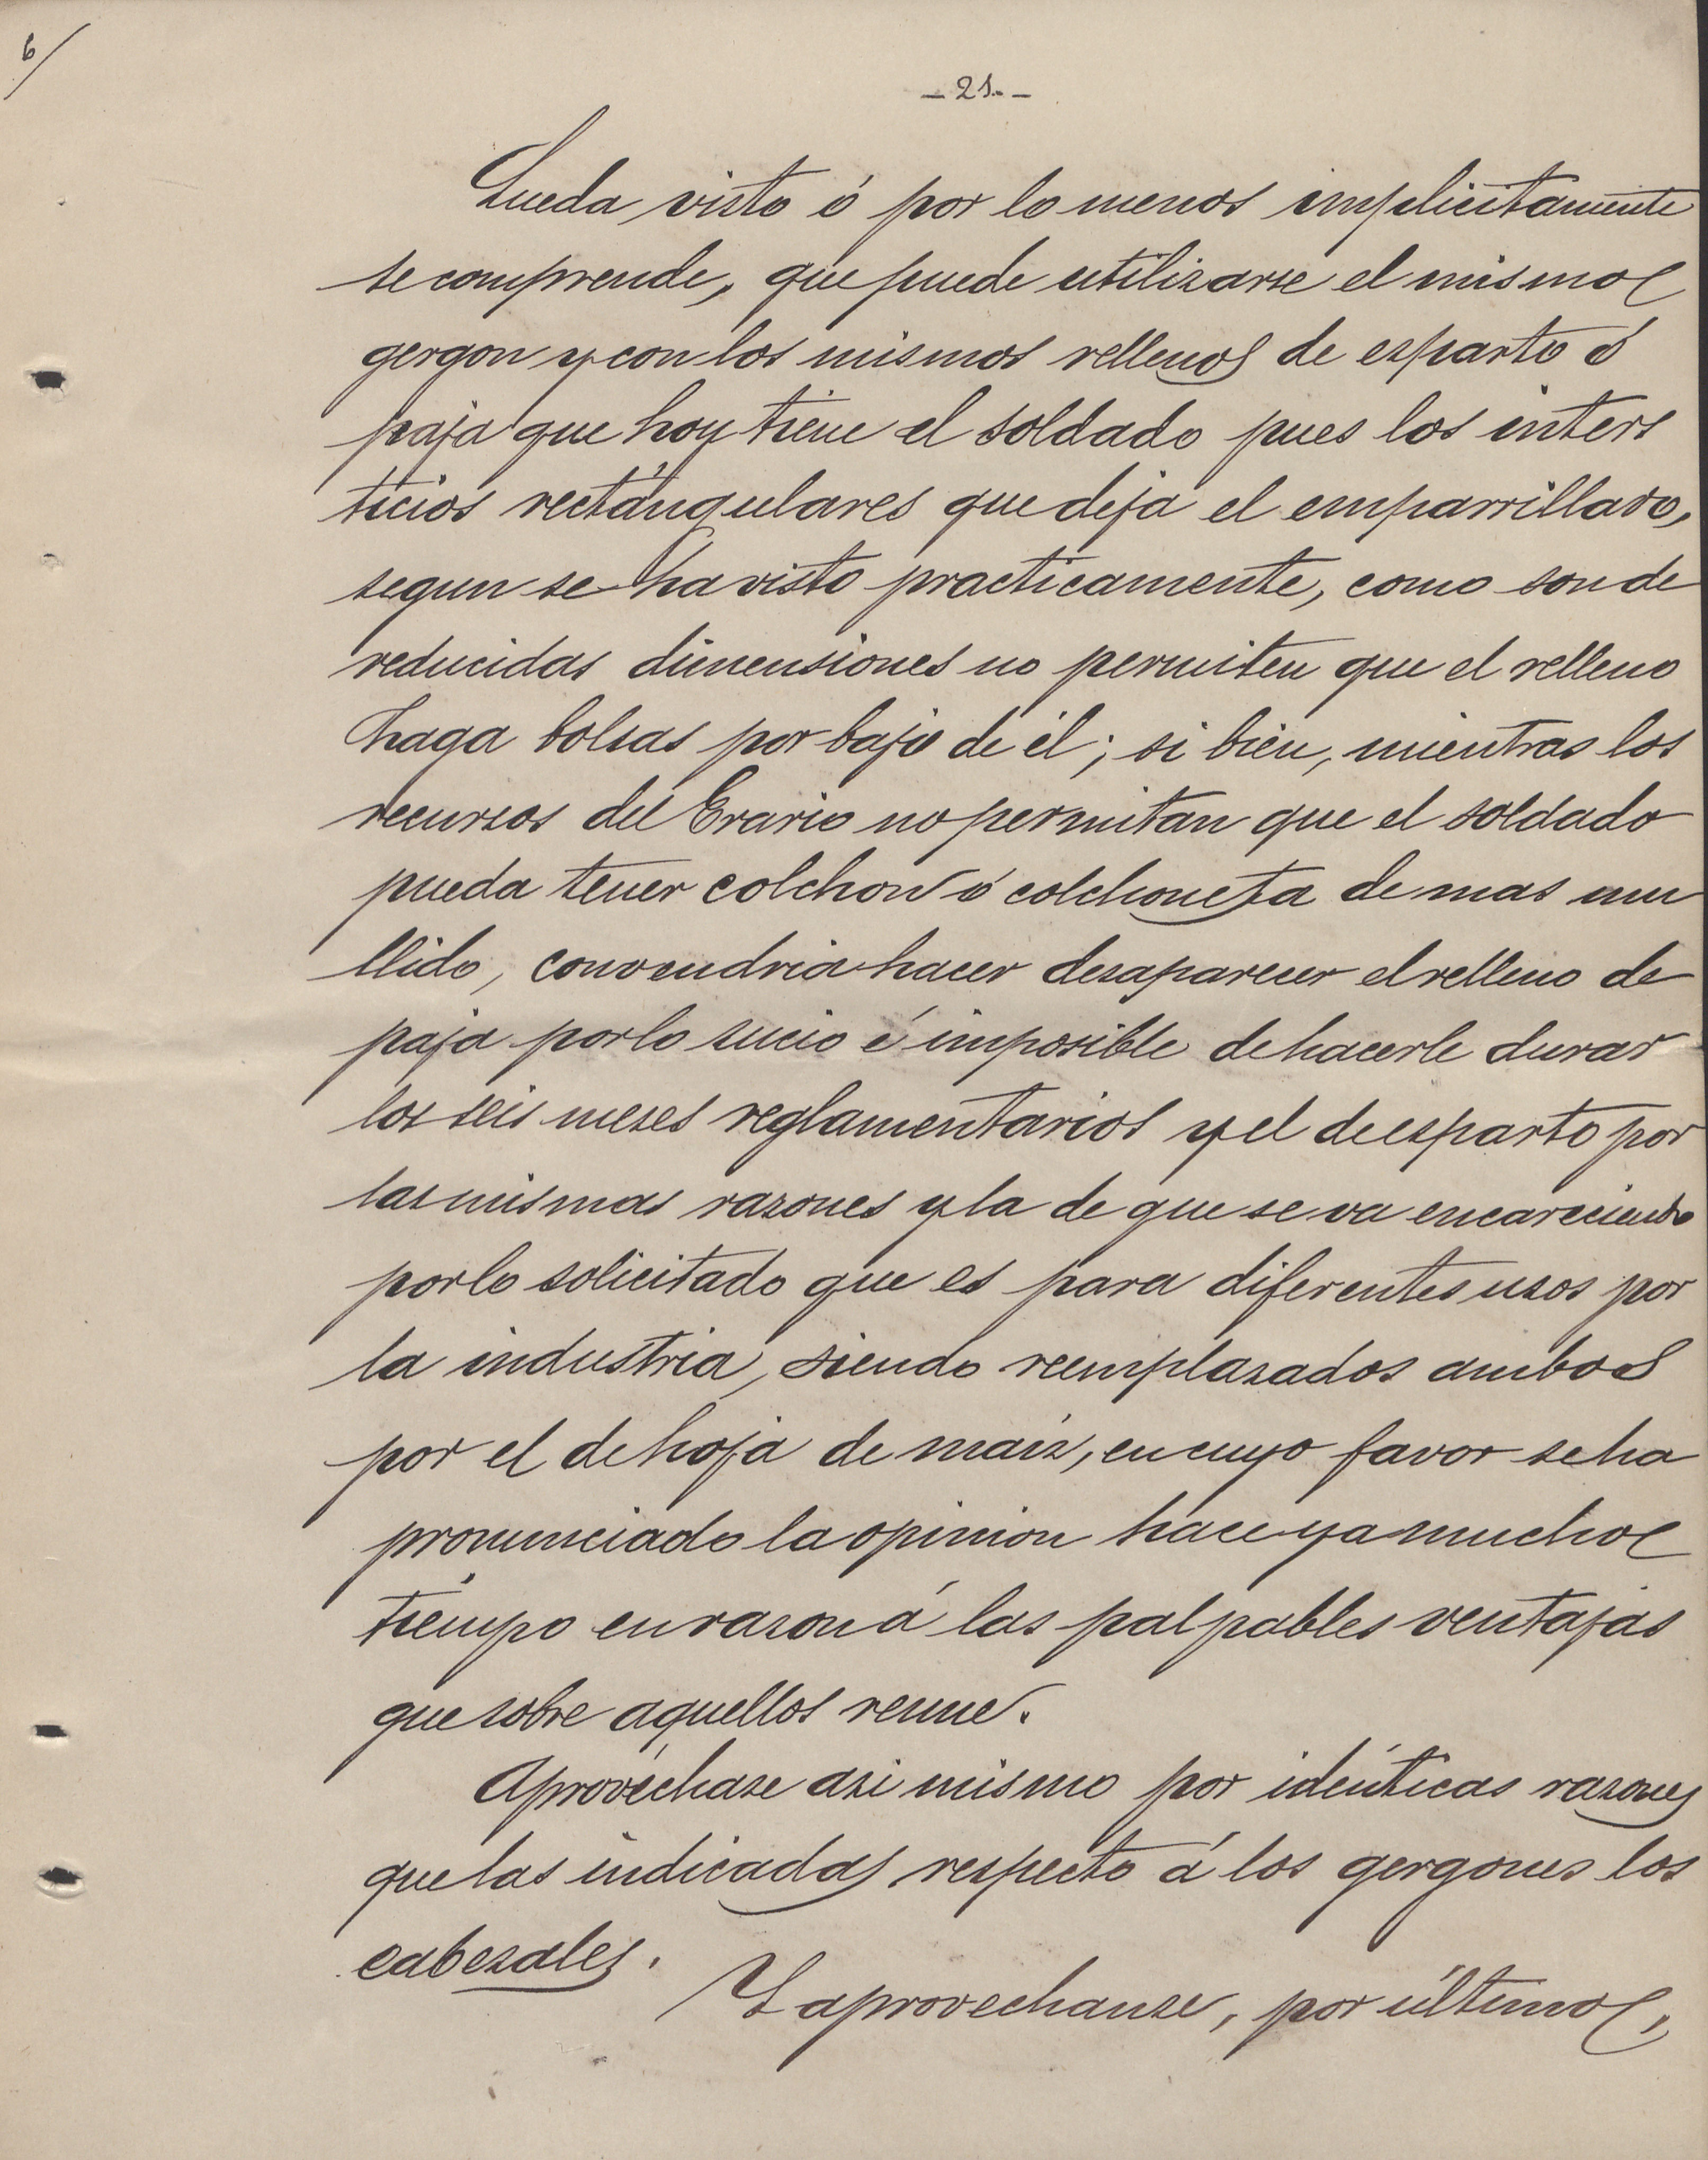 6/
- 21. -
Queda visto ó por lo menos implicitamente
se comprende, que puede utilizarse el mismo
gergon y con los mismos rellenos de esparto ó
paja que hoy tiene el soldado pues los inters
ticios rectángulares que deja el emparrillado,
segun se ha visto practicamente, como son de
reducidas dimensiones no permiten que el relleno
haga bolsas por bajo de él; si bien, mientras los
recursos del Erario no permitan que el soldado
pueda tener colchon ó colchoneta de mas mu
llido, convendria hacer desaparecer el relleno de
paja por lo sucio é imposible de hacerle durar
los seis meses reglamentarios y el de esparto por
las mismas razones y la de que se va encareciendo
por lo solicitado que es para diferentes usos por
la industria, siendo reemplazados ambos
por el de hoja de maiz, en cuyo favor se ha
pronunciado la opinion hace ya mucho
tiempo en razon á las palpables ventajas
que sobre aquellos reune.
Aprovéchase asi mismo por idénticas razones
que las indicadas respecto á los gergones los
cabezales.
Y aprovechanse, por último,